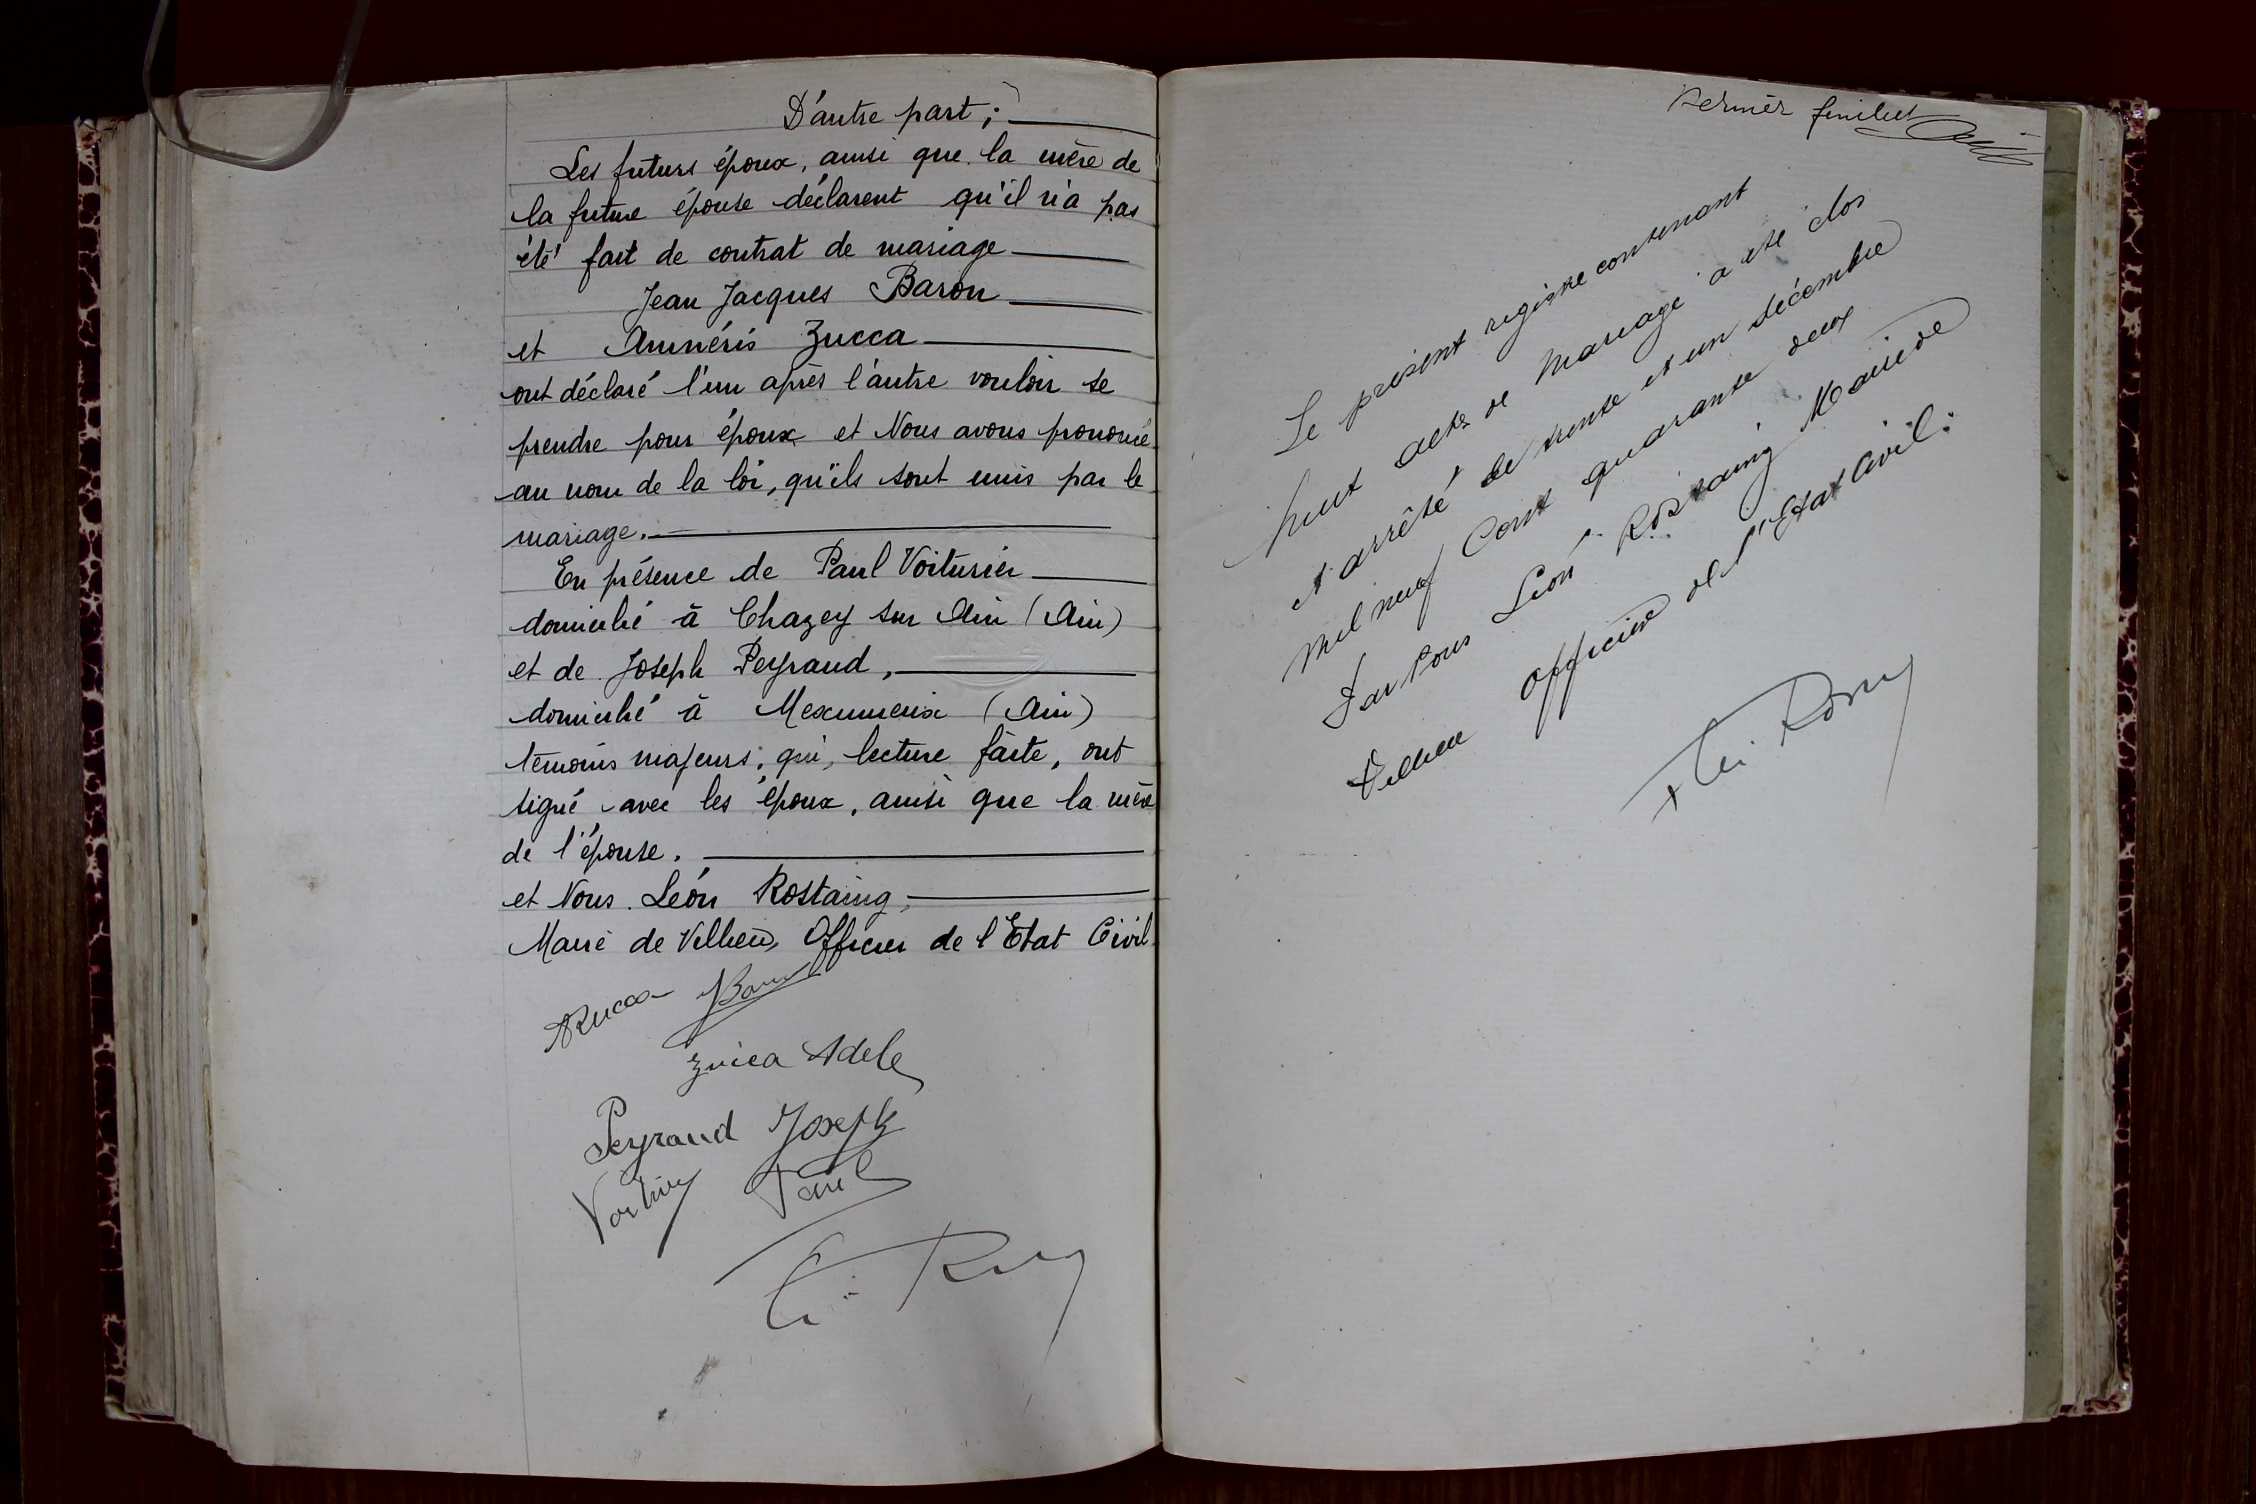 D'autre part ;
Les futurs époux, ainsi que la mère de
la future épouse déclarent qu'il n'a pas
été fait de contrat de mariage
Jean Jacques Baron
et Amnéris Zucca
ont déclaré l'un après l'autre vouloir se
prendre pour époux et Nous avons prononcé
au nom de la loi, qu'ils sont unis par le
mariage.
En présence de Paul Voiturier
domicilié à Chazey sur Ain (Ain)
et de Joseph Peyraud,
domicilié à Meximieux (Ain)
témoins majeurs, qui, lecture faite, ont
signé avec les époux, ainsi que la mère
de l'épouse.
et Nous Léon Rostaing,
Maire de Villieu, Officier de l'Etat Civil
AZucca JBaron
Zucca Adele
Peyraud Joseph
Paul
Dernier feuillet
Le présent registre contenant
huit actes de mariage a été clos
et arrêté le trente et un décembre
mil neuf Cent quarante deux
Par Nous Léon Rostaing Maire de
Villieu officier de l'Etat Civil :